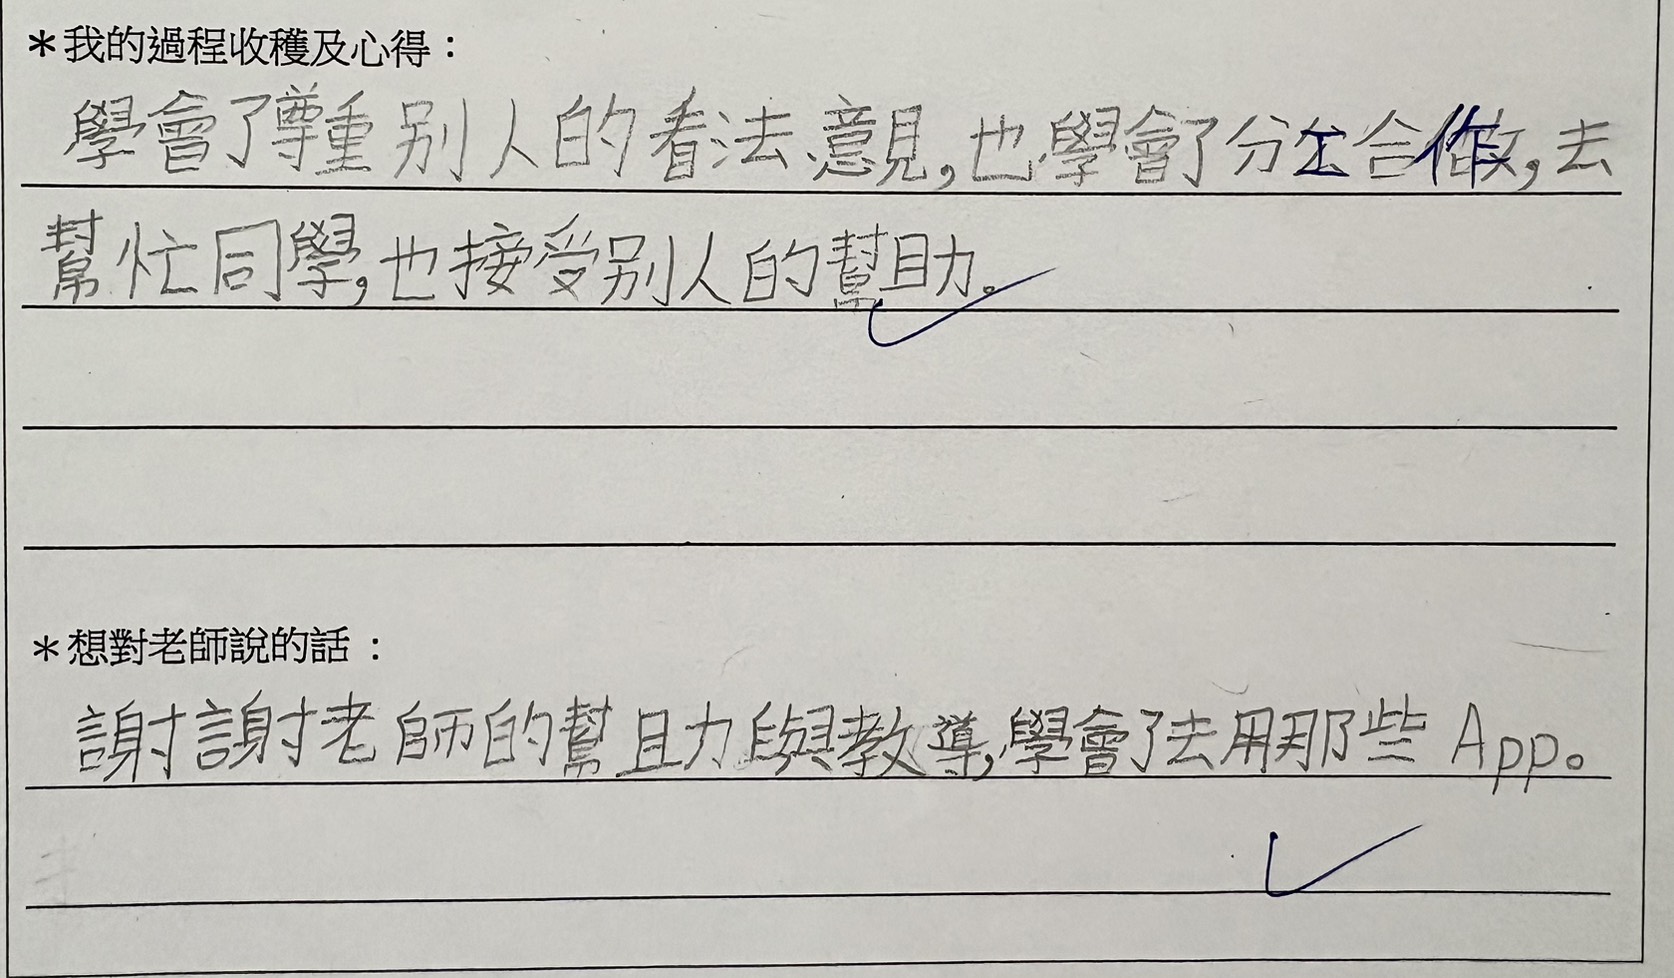 ＊我的過程收穫及心得：
學會了尊重別人的看法、意見，也學會了分工合作，去
幫忙同學，也接受別人的幫助。
＊想對老師說的話：
謝謝老師的幫助與教導，學會了去用那些App。